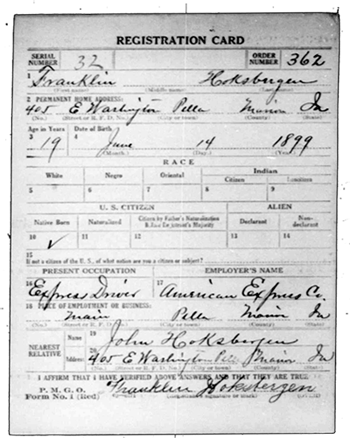 REGISTRATION CARD
SERIAL NUMBER 32 ORDER NUMBER 362
1 Franklin Hoksbergen
(First name) (Middle name) (Last name)
2 PERMANENT HOME ADDRESS:
405 E Washington Pella Marion Ia
(No.) (Street or R. F. D. No.) (City or town) (County) (State)
Age in Years Date of Birth
3 19 4 June 14 1899
(Month.) (Day.) (Year.)
RACE
White Negro Oriental Indian
Citizen Noncitizen
5 6 7 8 9
U. S. CITIZEN ALIEN
Native Born Naturalized Citizen by Father's Naturalization Before Registrant's Majority Declarant Non-declarant
10 ✓ 11 12 13 14
15
If not a citizen of the U. S., of what nation are you a citizen or subject?
PRESENT OCCUPATION EMPLOYER'S NAME
16 Express Driver 17 American Express Co.
18 PLACE OF EMPLOYMENT OR BUSINESS:
Main Pella Marion Ia
(No.) (Street or R. F. D. No.) (City or town) (County) (State)
NEAREST RELATIVE
Name 19 John Hoksbergen
Address 20 405 E Washington Pella Marion Ia
(No.) (Street or R. F. D. No.) (City or town) (County) (State)
I AFFIRM THAT I HAVE VERIFIED ABOVE ANSWERS AND THAT THEY ARE TRUE
P. M. G. O.
Form No. 1 (Red) Franklin Hoksbergen